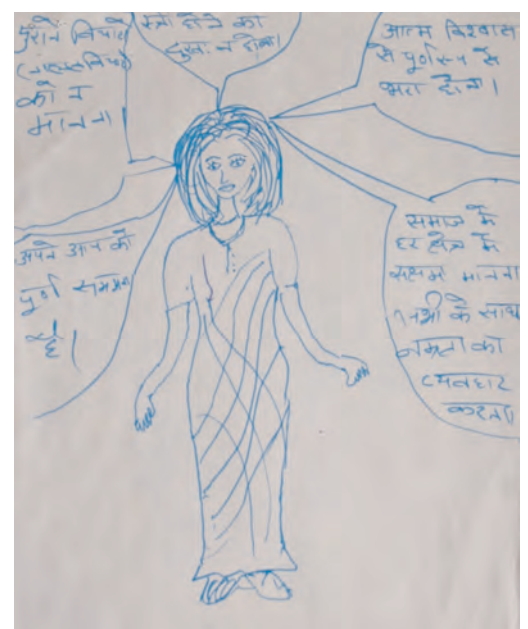 पुराने विचारो
को न
मानना।
स्त्री होने का
दुख न होना।
आत्म विश्वास
से पूर्णरूप से
भरा होना।
अपने आप को
पूर्ण समझना
है।
समाज के
हर क्षेत्र में
सक्षम मानना
सभी के साथ
नम्रता का
व्यवहार
करना।